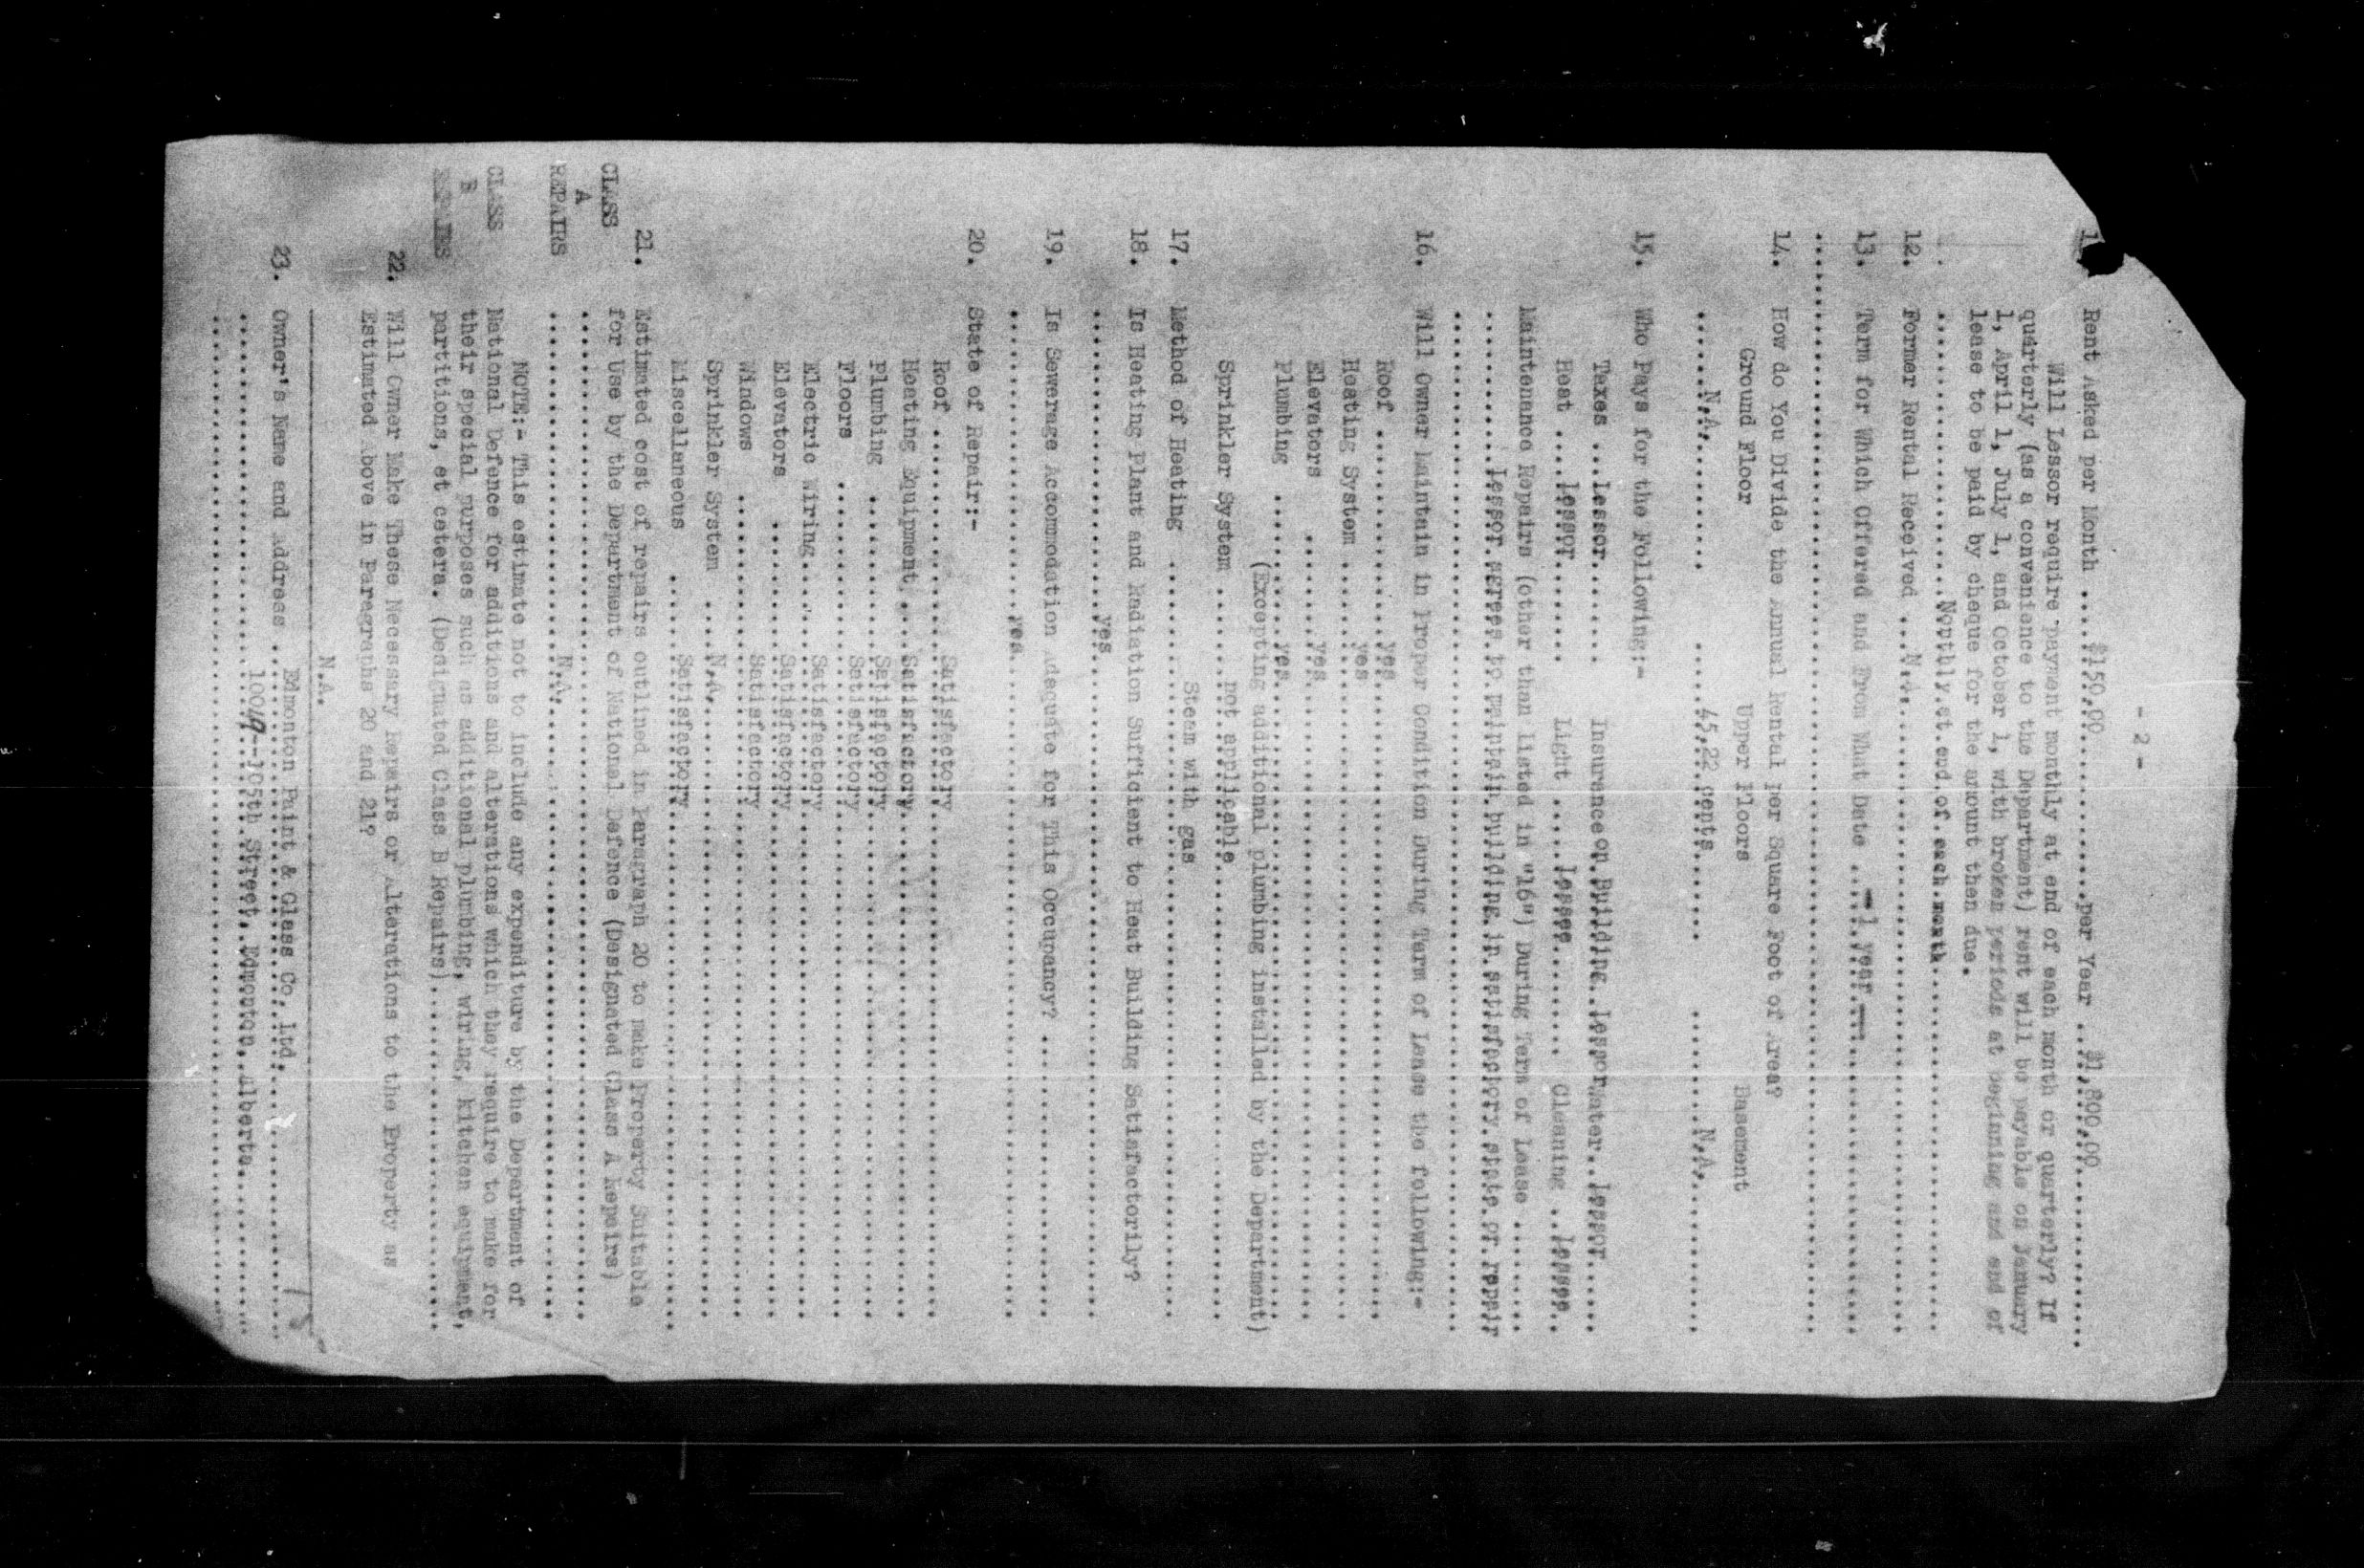 - 2 -
Rent Asked per Month .... $150.00 .........per Year ... $1,800.00 ..........
Will Lessor require payment monthly at end of each month or quarterly? If
quarterly (as a convenience to the Department) rent will be payable on January
1, April 1, July 1, and October 1, with broken periods at beginning and end of
lease to be paid by cheque for the amount then due.
..........Monthly at end of each month..........
12. Former Rental Received ...N.A...........
13. Term for Which Offered and From What Date ...- 1 year -..........
..........
14. How do You Divide the Annual Rental per Square Foot of Area?
Ground Floor Upper Floors Basement
.......N.A........... ......45.22 cents....... .........N.A...........
15. Who Pays for the Following:-
Taxes ...Lessor....... Insurance on Building..Lessor Water..Lessor.....
Heat ....Lessor....... Light .....lessee......... Cleaning ..lessee..
Maintenance Repairs (other than listed in "16") During Term of Lease ........
..........Lessor agrees to maintain building in satisfactory state or repair
..........
16. Will Owner Maintain in Proper Condition During Term of Lease the following:-
Roof ..........yes..........
Heating System ..........yes..........
Elevators ..........yes..........
Plumbing ..........yes..........
(Excepting additional plumbing installed by the Department)
Sprinkler System ..........not applicable..........
17. Method of Heating ..........Steam with gas..........
18. Is Heating Plant and Radiation Sufficient to Heat Building Satisfactorily?
..........yes..........
19. Is Sewerage Accommodation Adequate for This Occupancy? ..........
..........yes..........
20. State of Repair:-
Roof ..........Satisfactory..........
Heating Equipment....Satisfactory..........
Plumbing ..........Satisfactory..........
Floors ..........Satisfactory..........
Electric Wiring..........Satisfactory..........
Elevators ..........Satisfactory..........
Windows ..........Satisfactory..........
Sprinkler System ....N.A...........
Miscellaneous ......Satisfactory..........
21. Estimated cost of repairs outlined in Paragraph 20 to make Property Suitable
CLASS for Use by the Department of National Defence (Designated Class A Repairs)
A ..........
REPAIRS ..........N.A...........
NOTE:- This estimate not to include any expenditure by the Department of
CLASS National Defence for additions and alterations which they require to make for
B their special purposes such as additional plumbing, wiring, kitchen equipment,
REPAIRS partitions, et cetera. (Designated Class B Repairs)..........
22. Will Owner Make These Necessary Repairs or Alterations to the Property as
Estimated Above in Paragraphs 20 and 21?
N.A.
23. Owner's Name and Address ..Edmonton Paint & Glass Co. Ltd...........
..........10049--105th Street, Edmonton, Alberta..........
..........